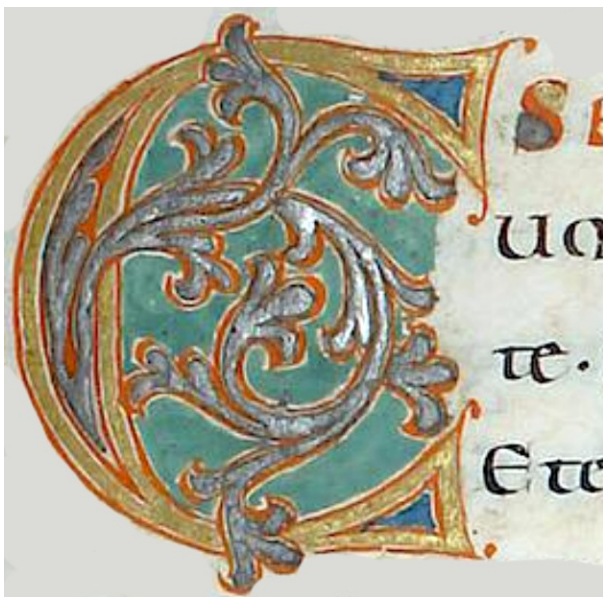 C SE
UM
te.
Ete